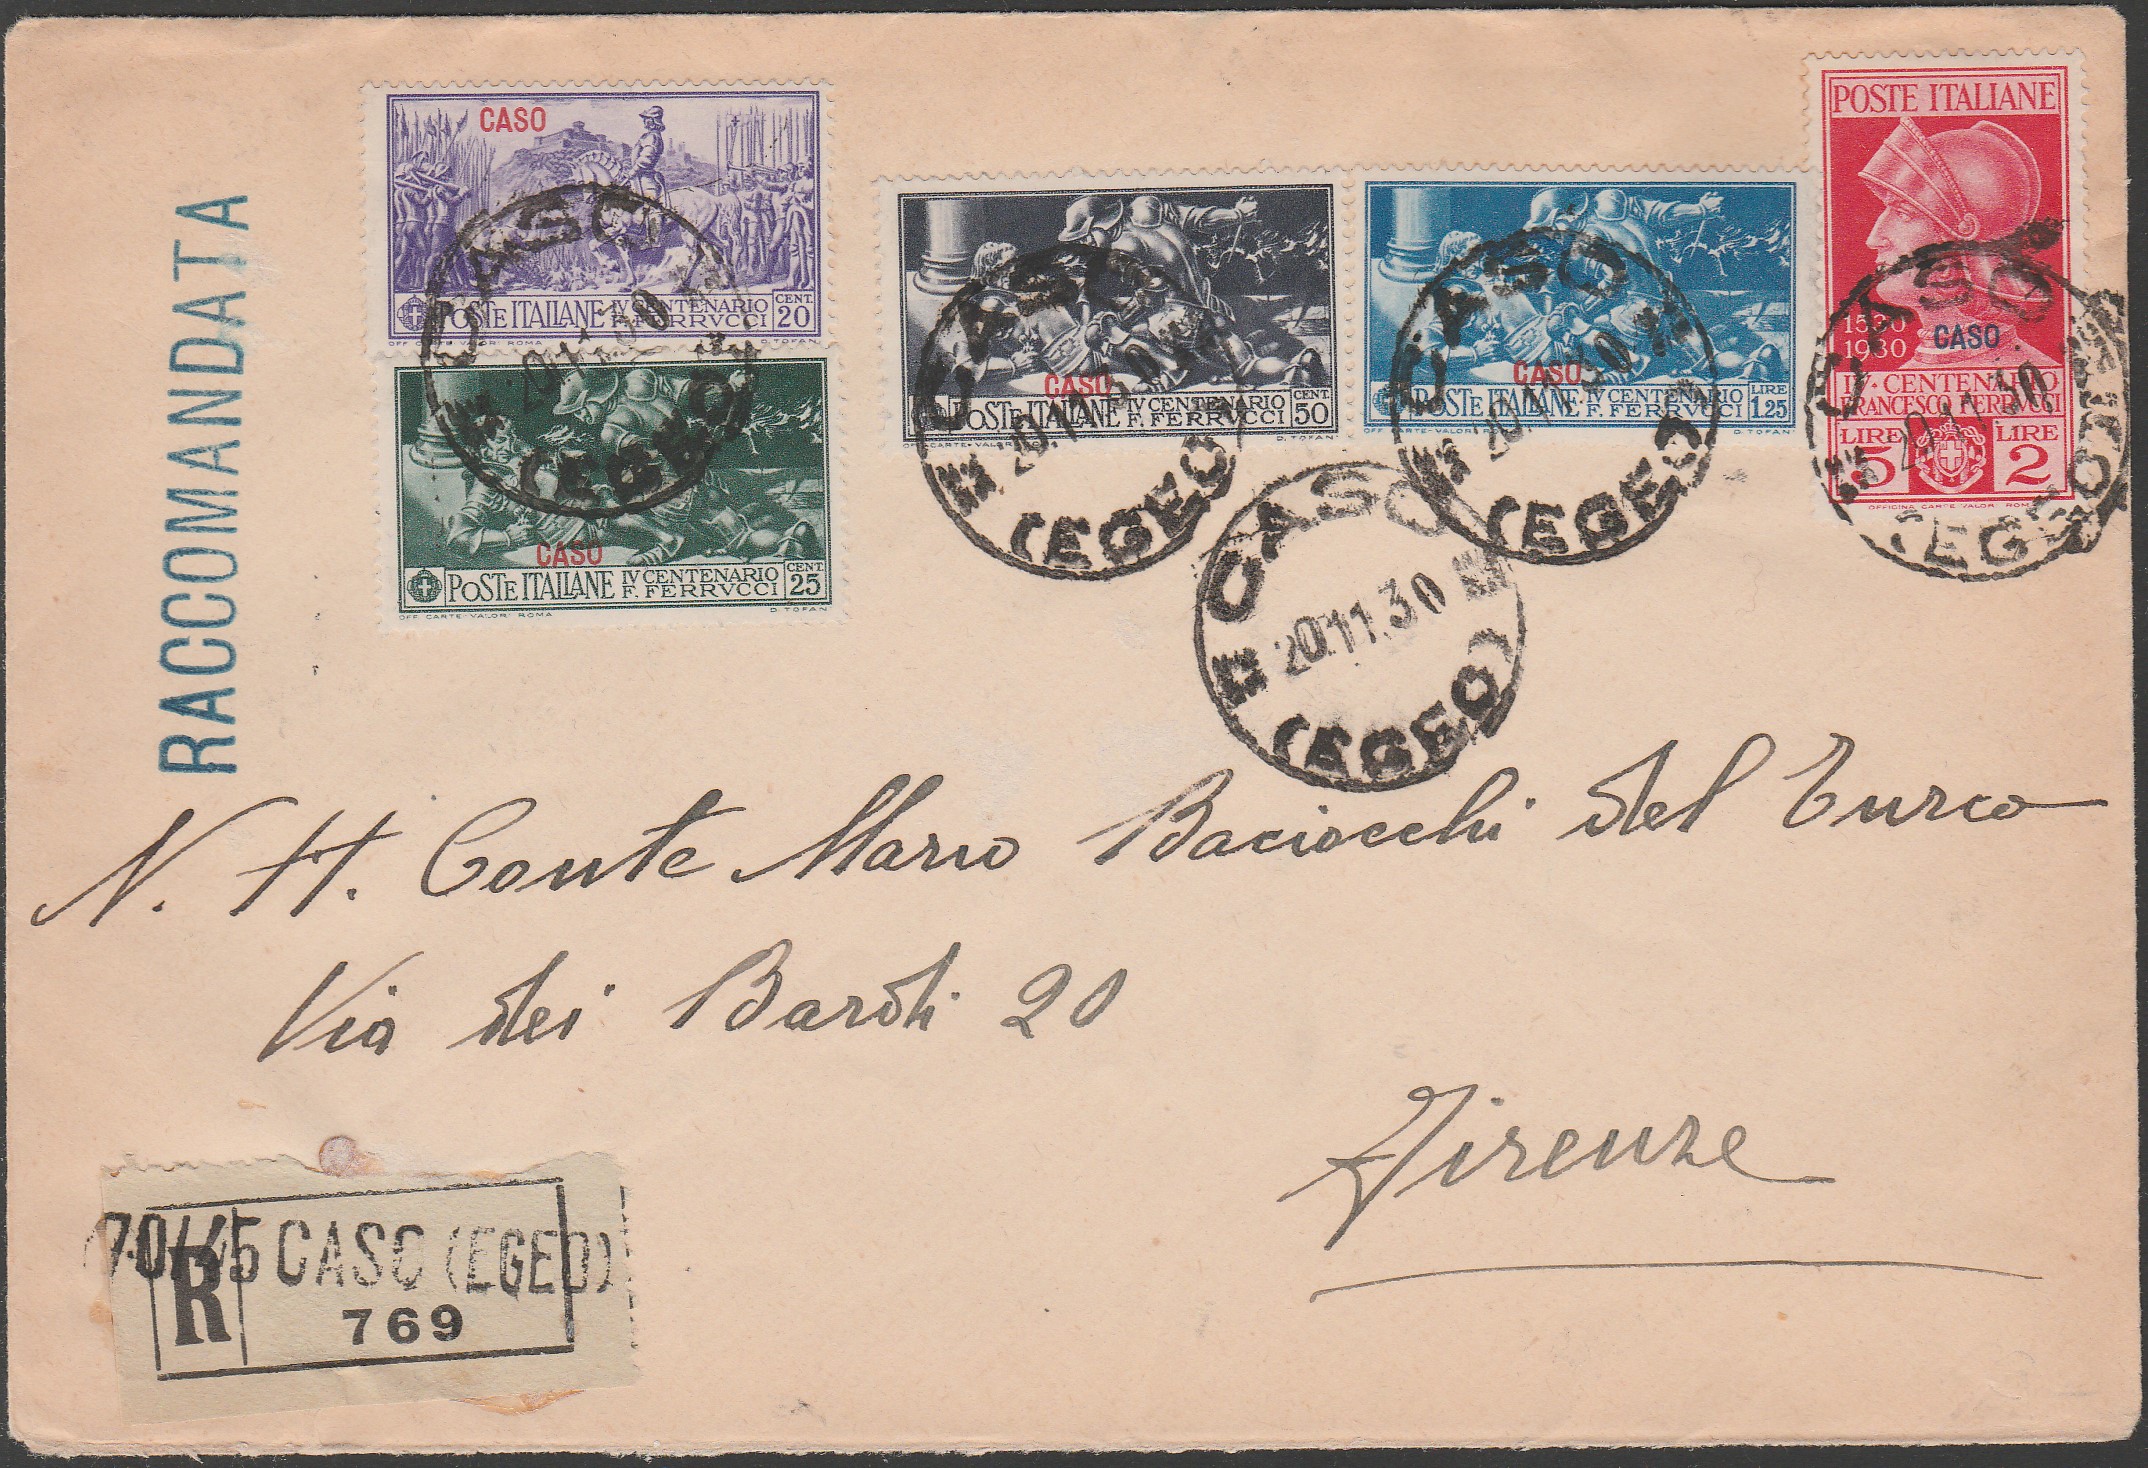 RACCOMANDATA
CASO
POSTE ITALIANE IV CENTENARIO F. FERRVCCI CENT. 20
OFF. CARTE-VALORI ROMA D. TOFANI
CASO
POSTE ITALIANE IV CENTENARIO F. FERRVCCI CENT. 25
OFF. CARTE-VALORI ROMA D. TOFANI
CASO
20.11.30
(EGEO)
CASO
POSTE ITALIANE IV CENTENARIO F. FERRVCCI CENT. 50
OFF. CARTE-VALORI D. TOFANI
CASO
20.11.30
(EGEO)
CASO
POSTE ITALIANE IV CENTENARIO F. FERRVCCI LIRE 1.25
OFF. CARTE-VALORI D. TOFANI
CASO
20.11.30
(EGEO)
POSTE ITALIANE
1530
1930
CASO
IV·CENTENARIO
FRANCESCO FERRVCCI
LIRE LIRE
5 2
OFFICINA CARTE VALORI ROMA
CASO
20.11.30
(EGEO)
CASO
20.11.30
(EGEO)
N. H. Conte Mario Baciocchi del Turco
Via dei Bardi 20
Firenze
(70/45 CASO (EGEO)
R
769